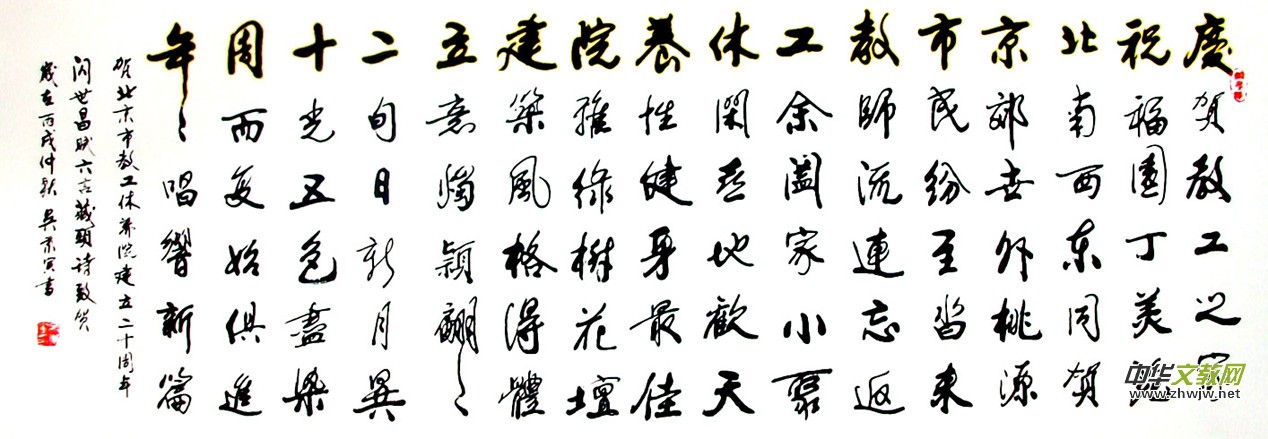 慶賀教工之家
祝福園丁美
北南西东同贺
京郊世外桃源
市民纷至沓来
教師流連忘返
工余闔家小聚
休閑喜地歡天
養性健身最佳
院雅绿樹花壇
建築風格得體
立意獨穎翩〻
二旬日新月異
十光五色盡染
周而复始俱進
年〻唱響新篇
贺北京市教工休养院建立二十周年
闪世昌赋六言藏頭诗致贺
歲在丙戌仲秋 吴景寅書
中华文教网
www.zhwjw.net